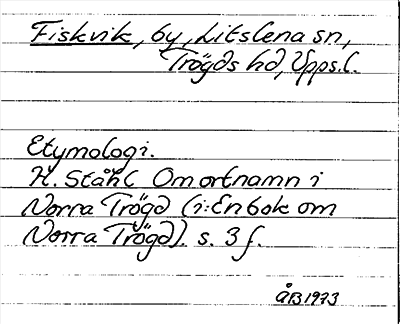 Fiskvik, by, Litslena sn,
Trögds hd, Upps.l.
Etymologi.
H. Ståhl Om ortnamn i
Norra Trögd (i: En bok om
Norra Trögd). s. 3 f.
ÅB 1973